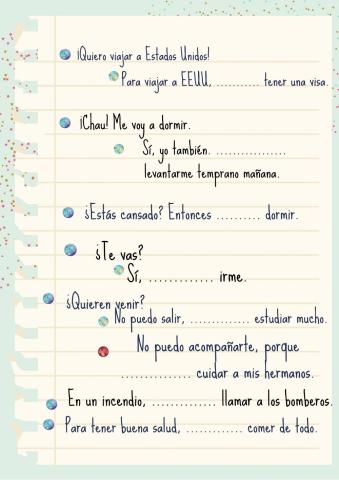 ¡Quiero viajar a Estados Unidos!
Para viajar a EEUU, ........... tener una visa.
¡Chau! Me voy a dormir.
Sí, yo también. .................
levantarme temprano mañana.
¿Estás cansado? Entonces .......... dormir.
¿Te vas?
Sí, ............. irme.
¿Quieren venir?
No puedo salir, ............. estudiar mucho.
No puedo acompañarte, porque
............... cuidar a mis hermanos.
En un incendio, ............. llamar a los bomberos.
Para tener buena salud, ............ comer de todo.